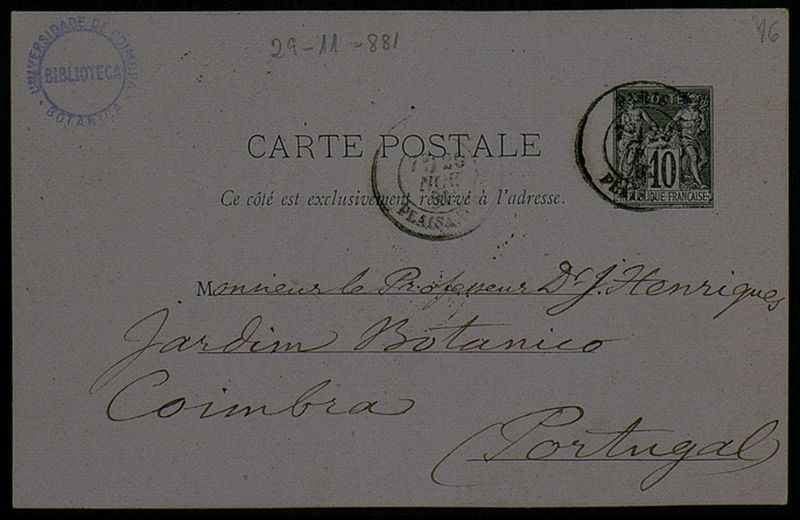 29-11-881
96
UNIVERSIDADE DE COIMBRA
BIBLIOTECA
BOTANICA
CARTE POSTALE
10
RÉPUBLIQUE FRANÇAISE
Ce côté est exclusivement réservé à l'adresse.
Monsieur le Professeur Dr. J. Henriques
Jardim Botanico
Coimbra
Portugal